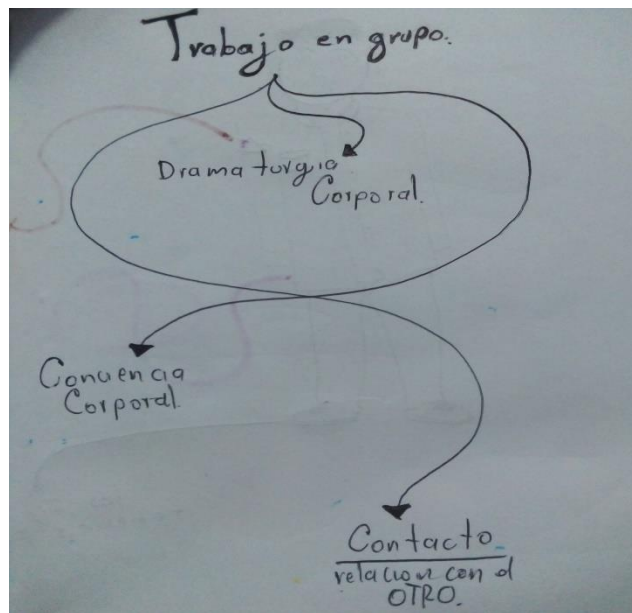 Trabajo en grupo.
Dramaturgia
Corporal.
Conciencia
Corporal.
Contacto
relacion con el
OTRO.